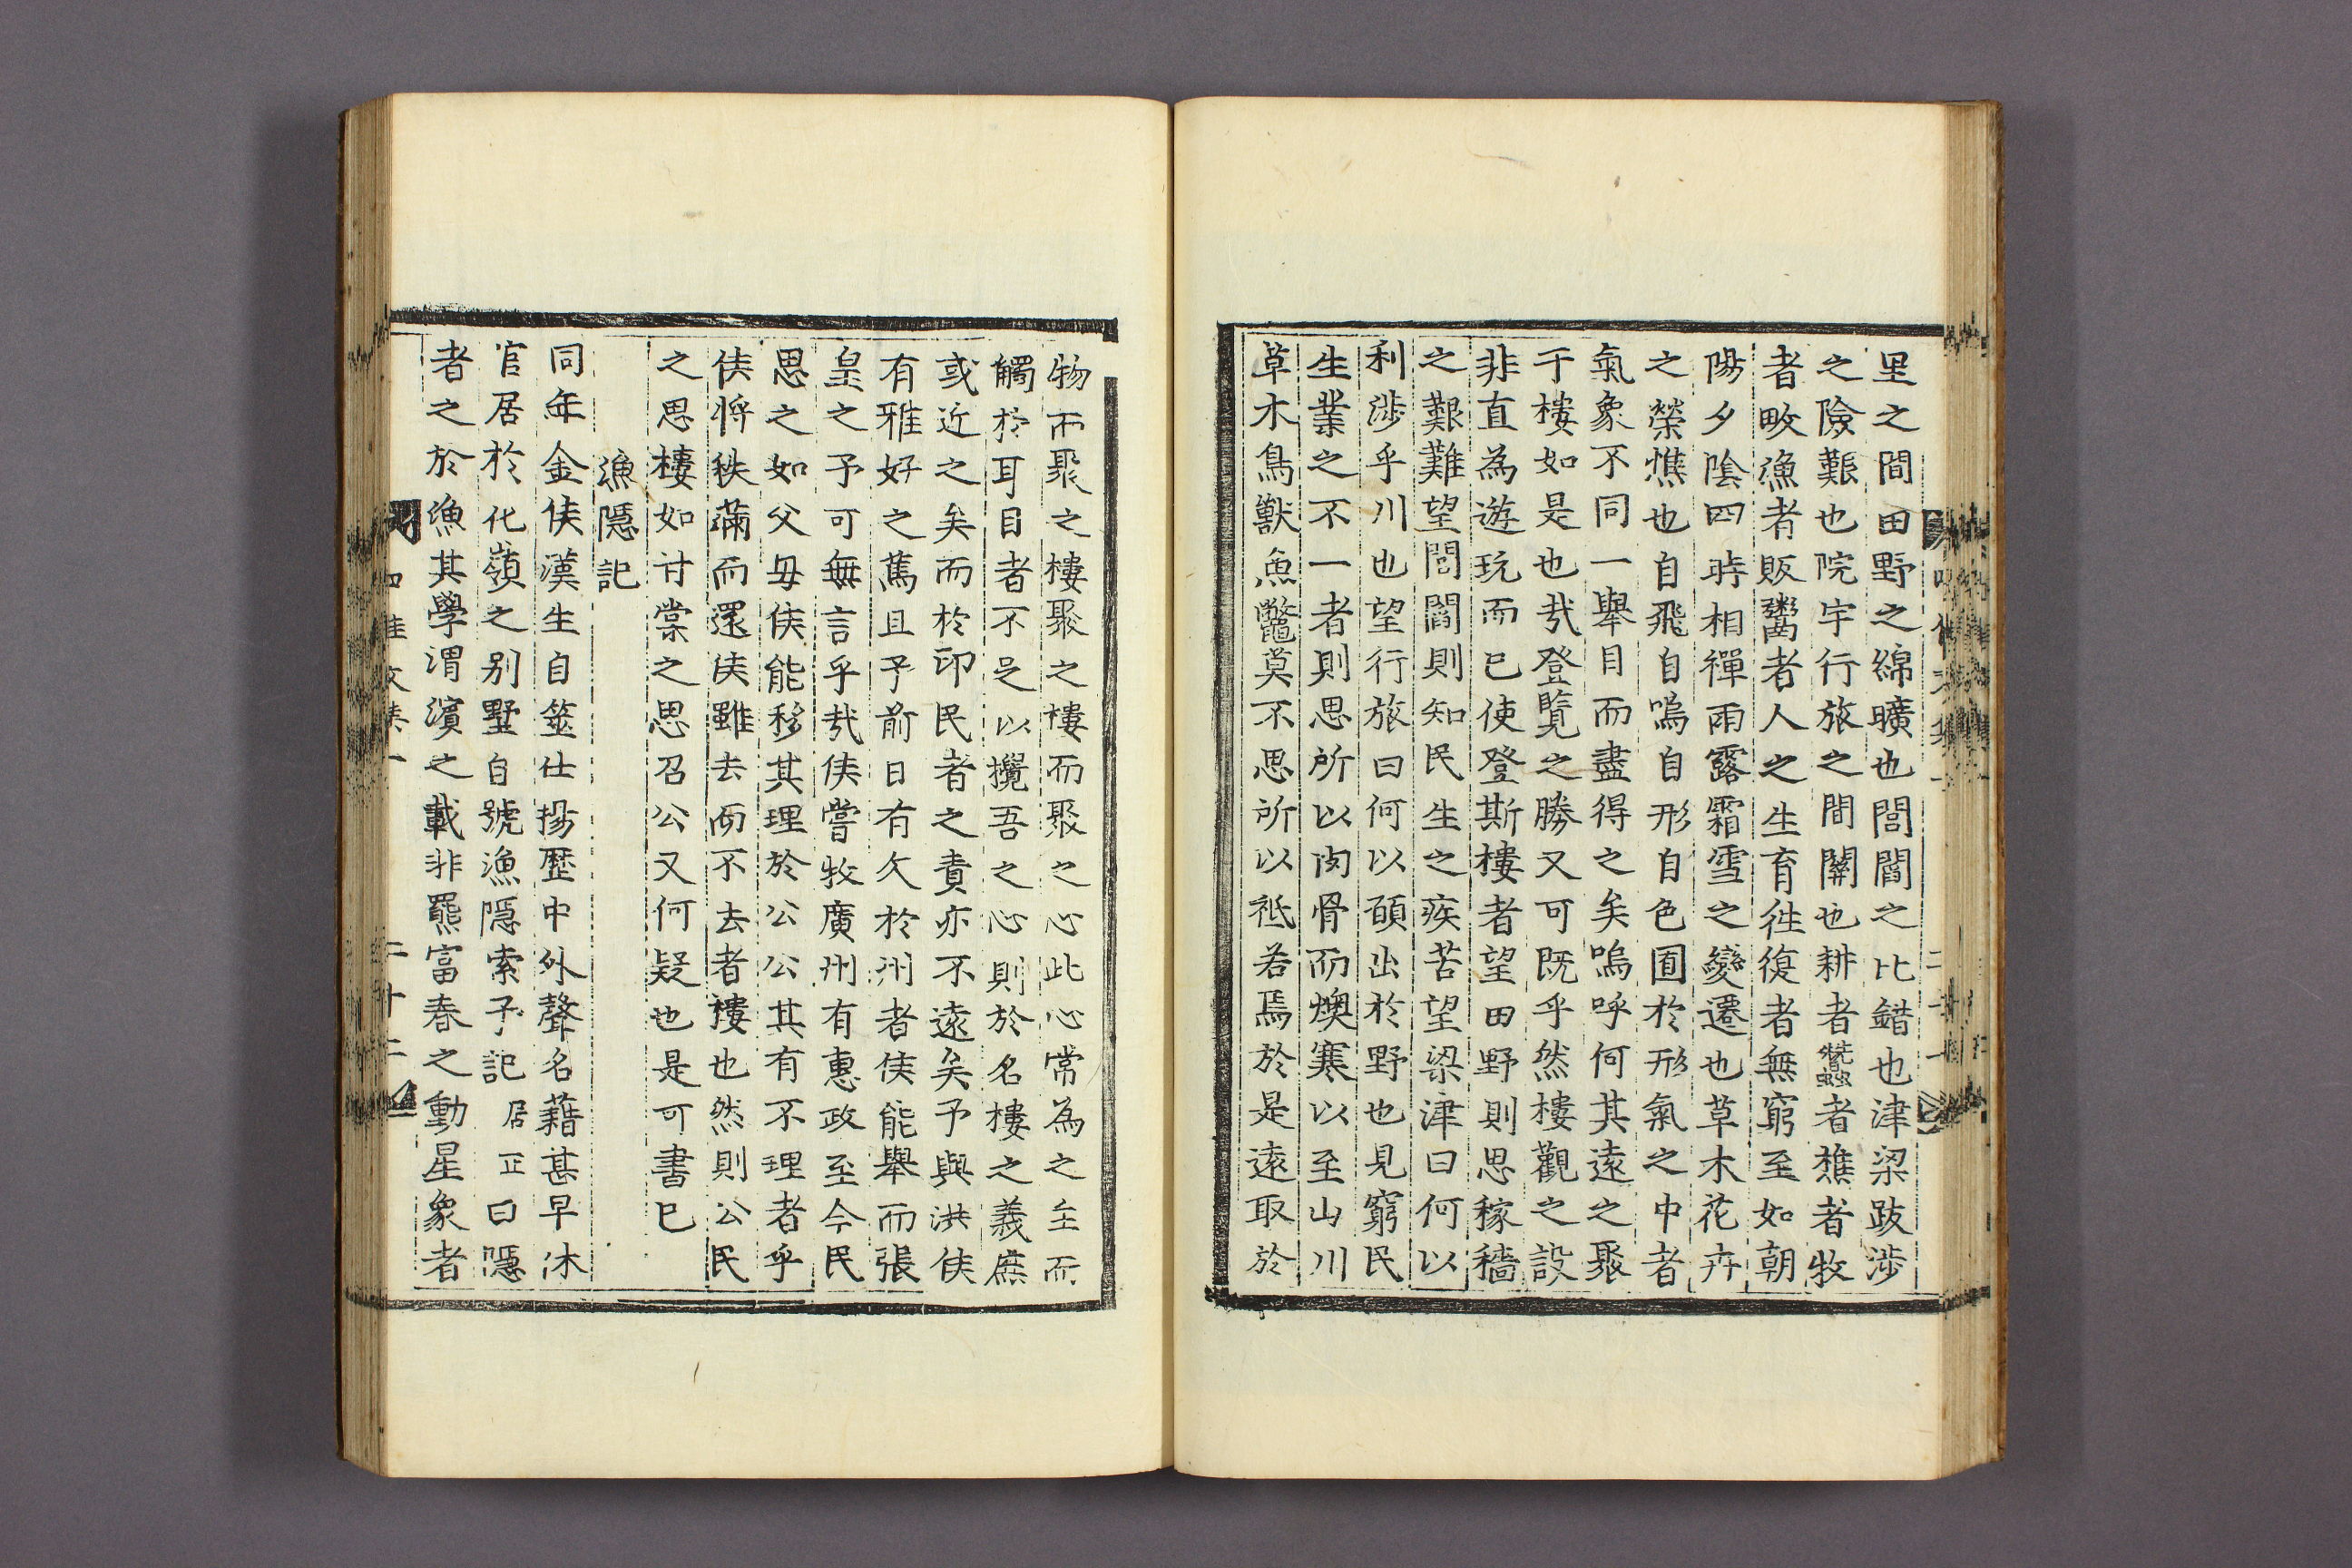 里之間田野之綿曠也閭閻之比錯也津梁跋涉
之險艱也院宇行旅之間關也耕者蠶者樵者牧
者畋漁者販鬻者人之生育徃復者無窮至如朝
陽夕陰四時相禪雨露霜雪之變遷也草木花卉
之榮憔也自飛自鳴自形自色囿於形氣之中者
氣象不同一舉目而盡得之矣嗚呼何其遠之聚
于樓如是也㢤登覽之勝又可既乎然樓觀之設
非直為遊玩而已使登斯樓者望田野則思稼穡
之艱難望閭閻則知民生之疾苦望梁津曰何以
利涉乎川也望行旅曰何以碩出於野也見窮民
生業之不一者則思所以肉骨而燠寒以至山川
草木鳥獸魚鼈莫不思所以祗若焉於是遠取於
物而聚之樓聚之樓而聚之心此心常為之主而
觸於耳目者不足以攪吾之心則於名樓之義庶
或近之矣而於印民者之責亦不遠矣予與洪侯
有雅好之舊且予前日有攵於州者侯能舉而張
皇之予可無言乎㢤侯嘗牧廣州有惠政至今民
思之如父母侯能移其理於公公其有不理者乎
侯將秩滿而還侯雖去而不去者樓也然則公民
之思樓如甘棠之思召公又何疑也是可書已
漁隱記
同年金侯漢生自筮仕揚歷中外聲名藉甚早休
官居於化嶺之别墅自號漁隱索予記居正曰隱
者之於漁其學渭濱之載非羆富春之動星象者
四佳文集一
二十二